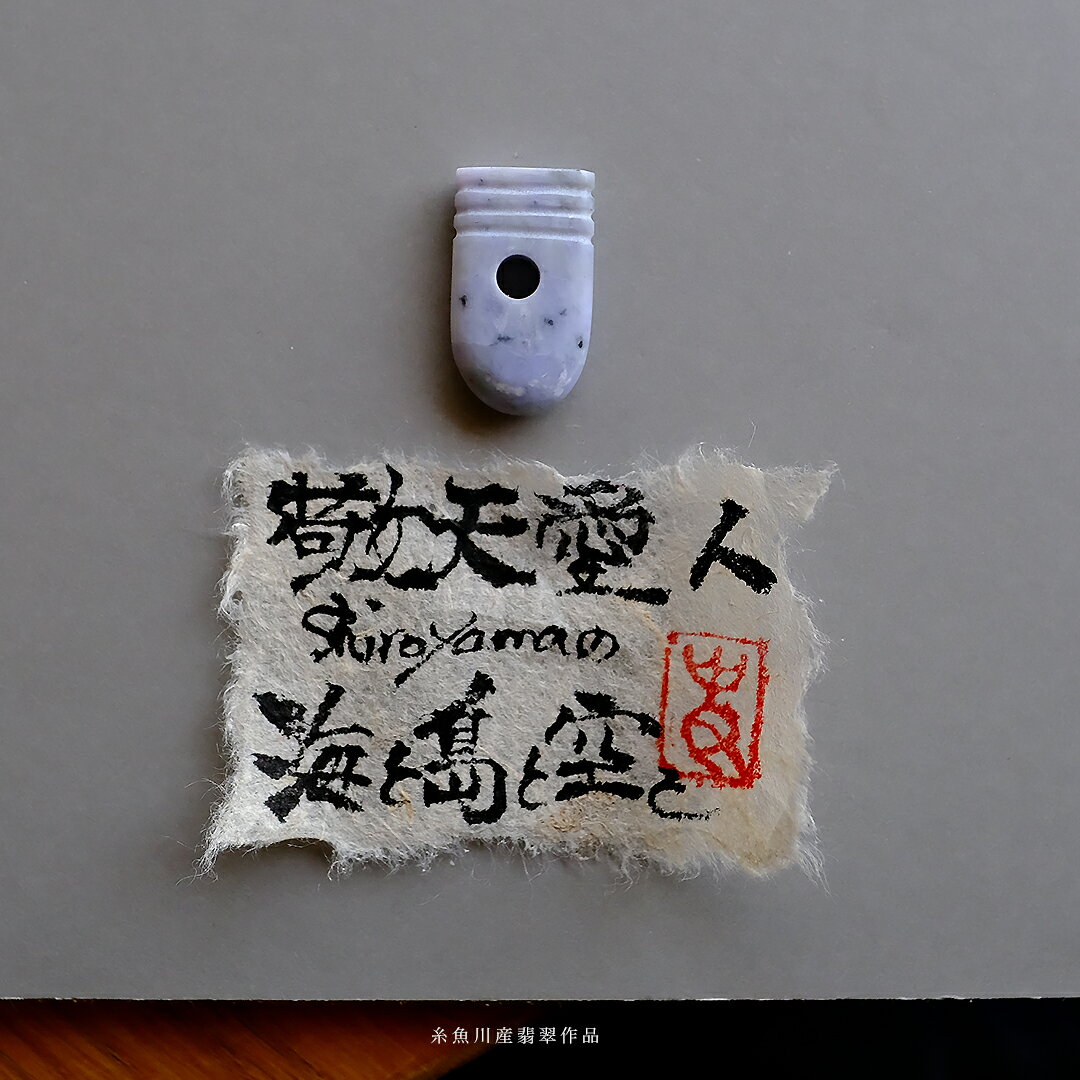 敬天愛人
Shiroyamaの
海と島と空と
糸魚川産翡翠作品